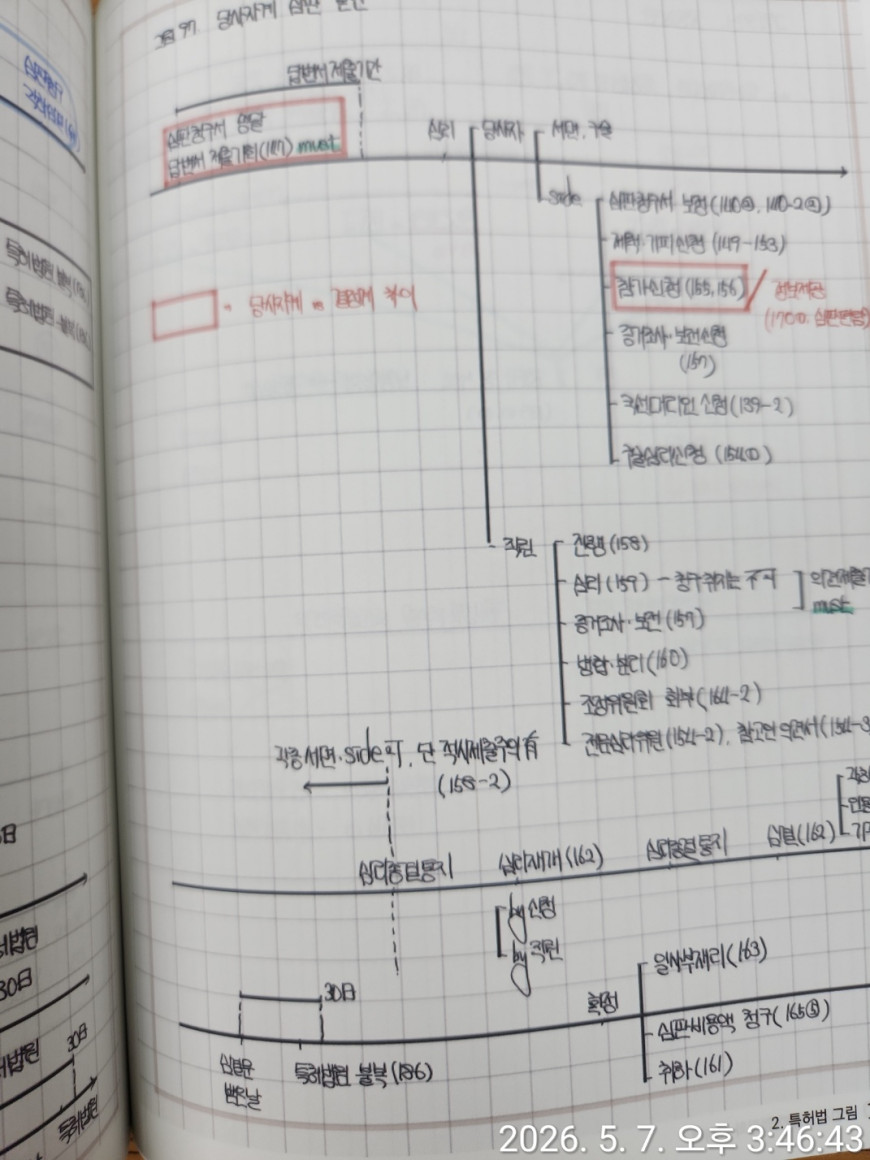 그림 97. 당사자계 심판 흐름
답변서 제출기간
심판청구서 송달
답변서 제출기회(147) must
심리
당사자
서면, 구술
side
심판청구서 보정(140②, 140-2②)
제척·기피신청 (149-153)
참가신청(155,156)
정보제공
증거조사·보전신청
(157)
국선대리인 신청(139-2)
구술심리신청 (154①)
당사자계
직권
진행(158)
심리(159) - 청구취지는 不可
must
증거조사·보전(157)
병합·분리(160)
조정위원회 회부(164-2)
전문심리위원(154-2), 참고인 의견서(154-3
각종서면·side可, 단 적시제출주의有
(158-2)
심리종결통지
심리재개(162)
심리종결통지
심결(162)
by신청
by직권
30日
심결문
받은날
특허법원 불복(186)
확정
일사부재리(163)
심판비용액 청구(165⑤)
취하(161)
30日
30日
특허법원
2. 특허법 그림
2026. 5. 7. 오후 3:46:43